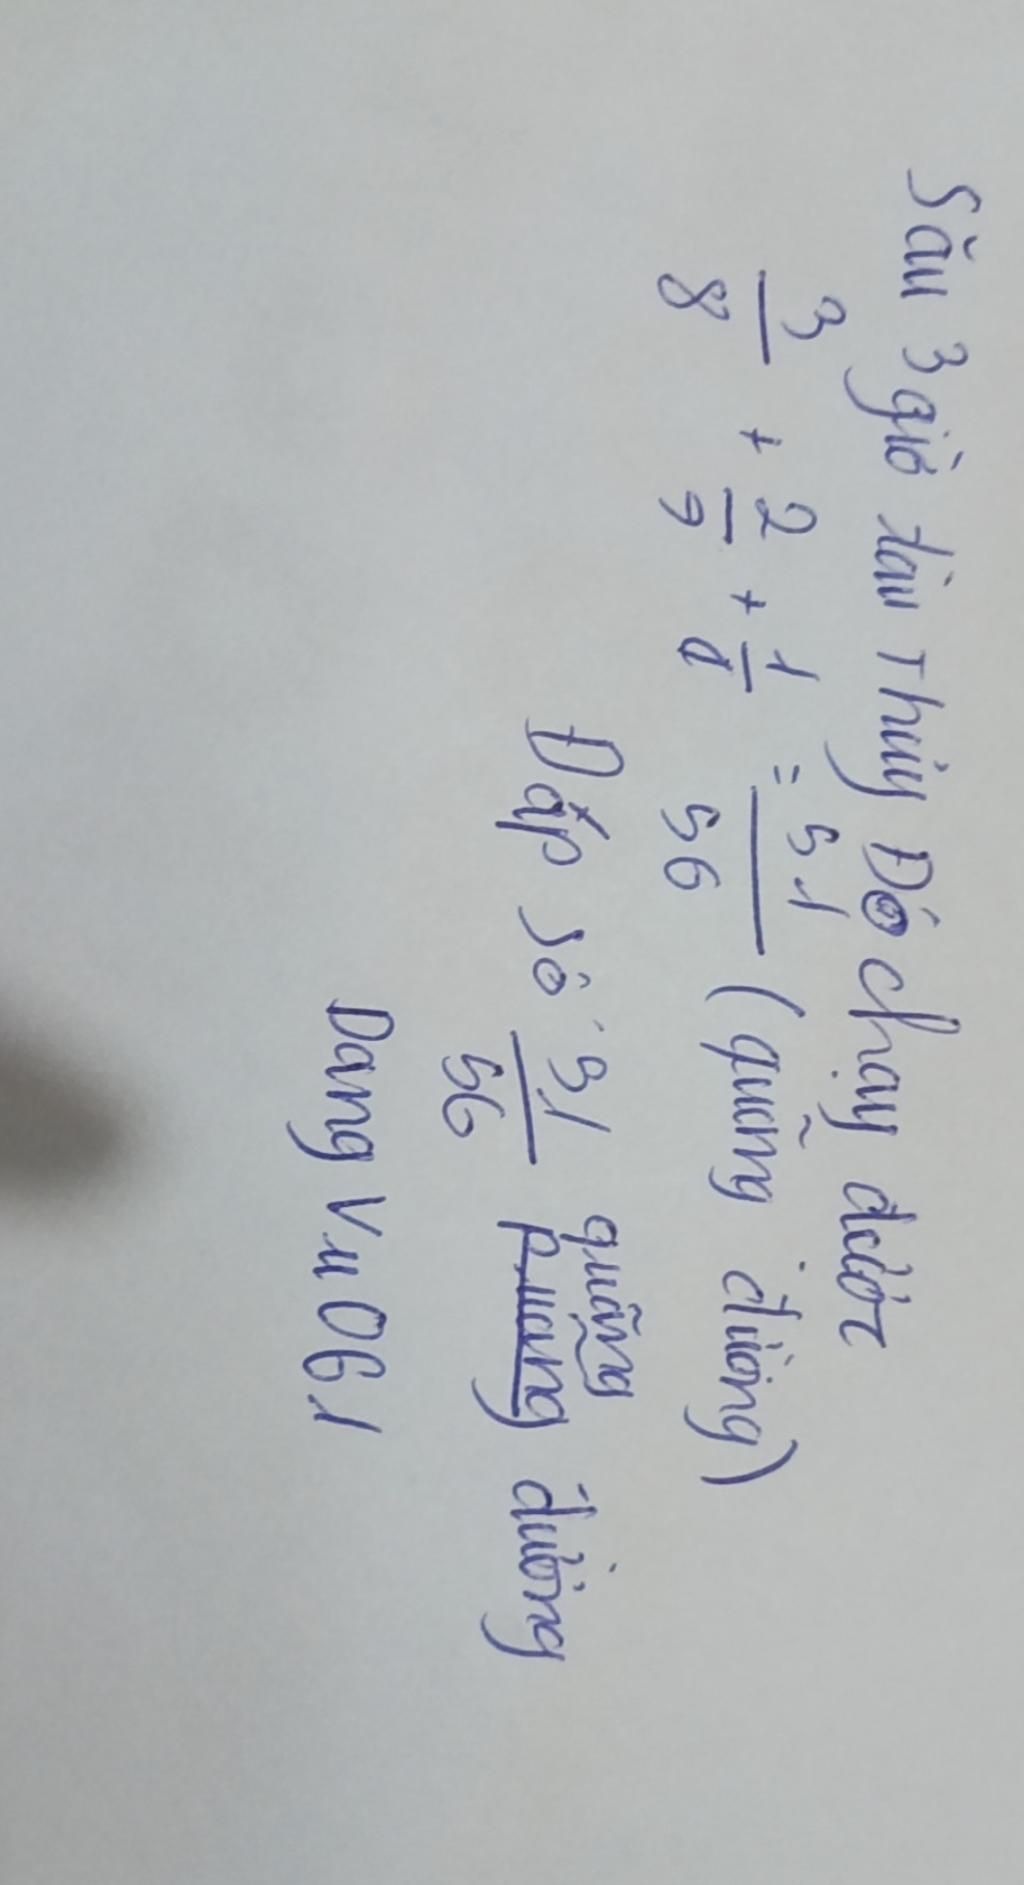 Sau 3 giờ tàu Thủy Đó chạy được
3/8 + 2/7 + 1/4 = 51/56 (quãng đường)
Đáp số: 51/56 quãng đường
Dang Vu 061